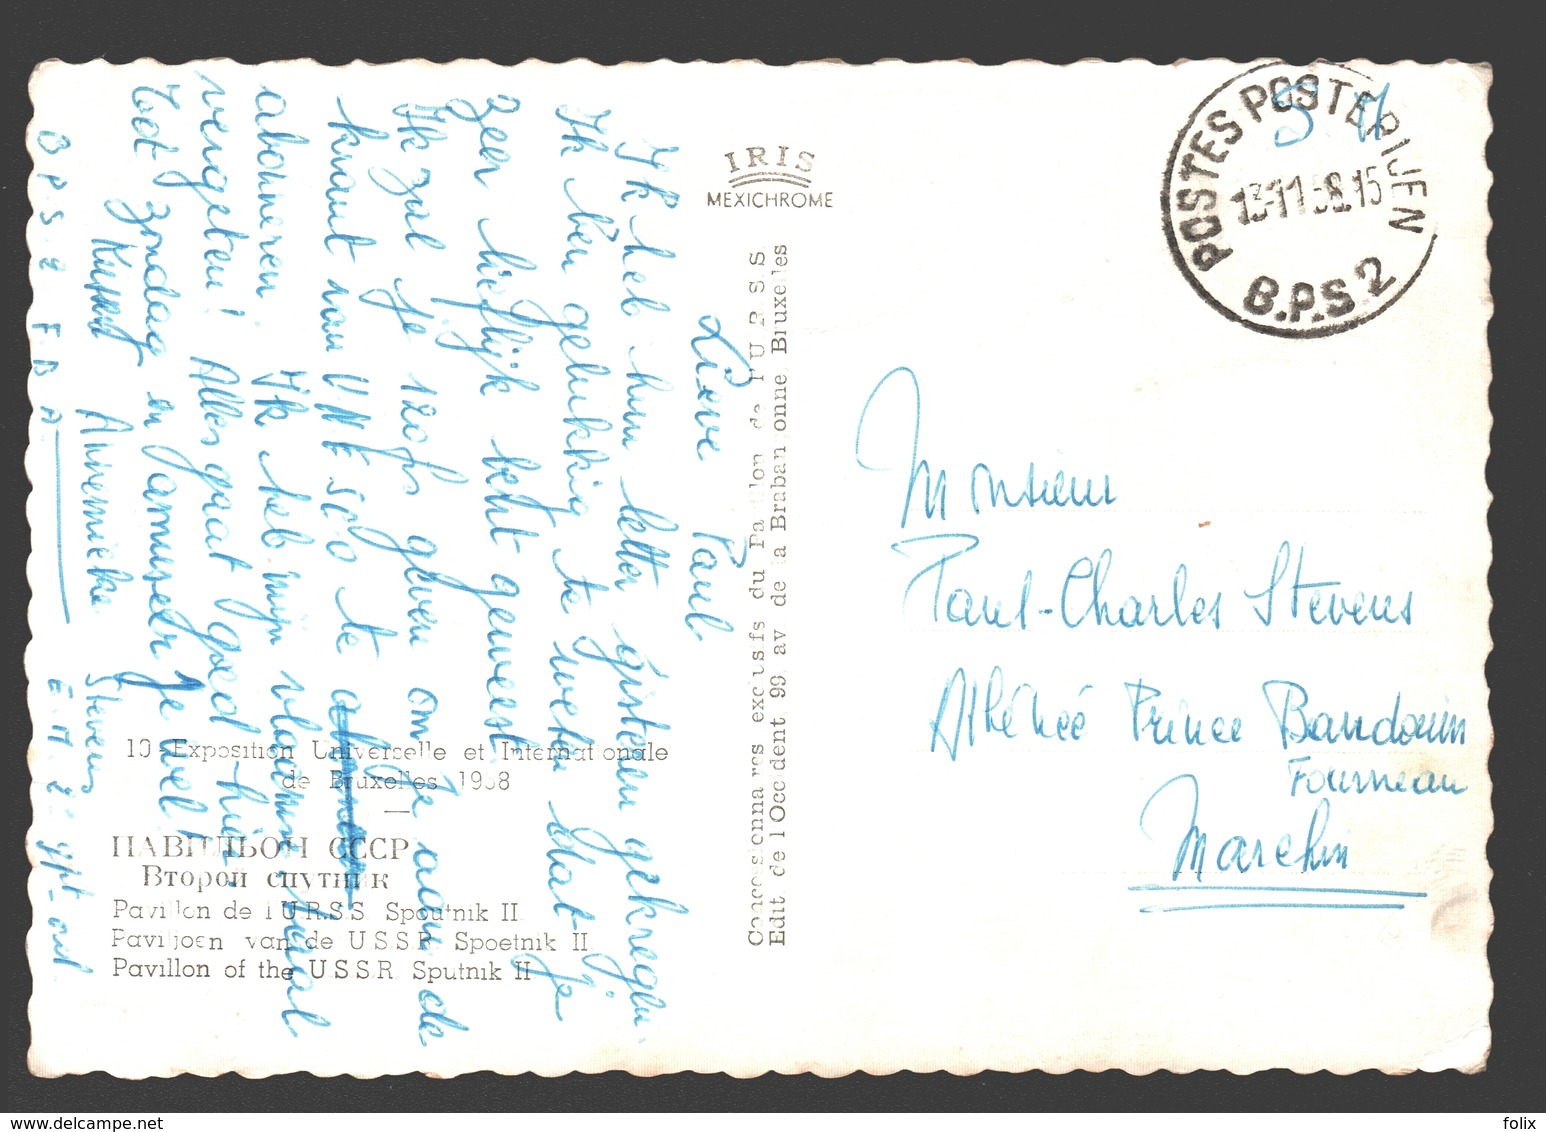 IRIS
MEXICHROME
POSTES POSTERIJEN
13-11 58.15
B.P.S 2
S. M
Lieve Paul
Ik heb hun letter gisteren gekregen.
Ik ben gelukkig te weten dat je
zeer lieflijk hebt geweest.
Ik zal je 120fr geven om je aan de
krant van UNESCO te
abonneren. Ik heb mijn vlaams
vergeten! Alles gaat goed hier.
Tot zondag en jamuseer je wel!
Annemieke Stevens
B P S 2 F B A
Concessionnaires exclusifs du Pavillon de l'U.R.S.S
Edit de l'Occident, 99, av de la Brabançonne, Bruxelles
10 - Exposition Universelle et Internationale
de Bruxelles 1958
ПАВИЛЬОН СССР
Второй спутник
Pavillon de l'U.R.S.S. Spoutnik II
Paviljoen van de U.S.S.R. Spoetnik II
Pavillon of the U.S.S.R. Sputnik II
Monsieur
Paul-Charles Stevens
Athénée Prince Baudouin
Fourneau
Marchin
folix_
delcampe.net